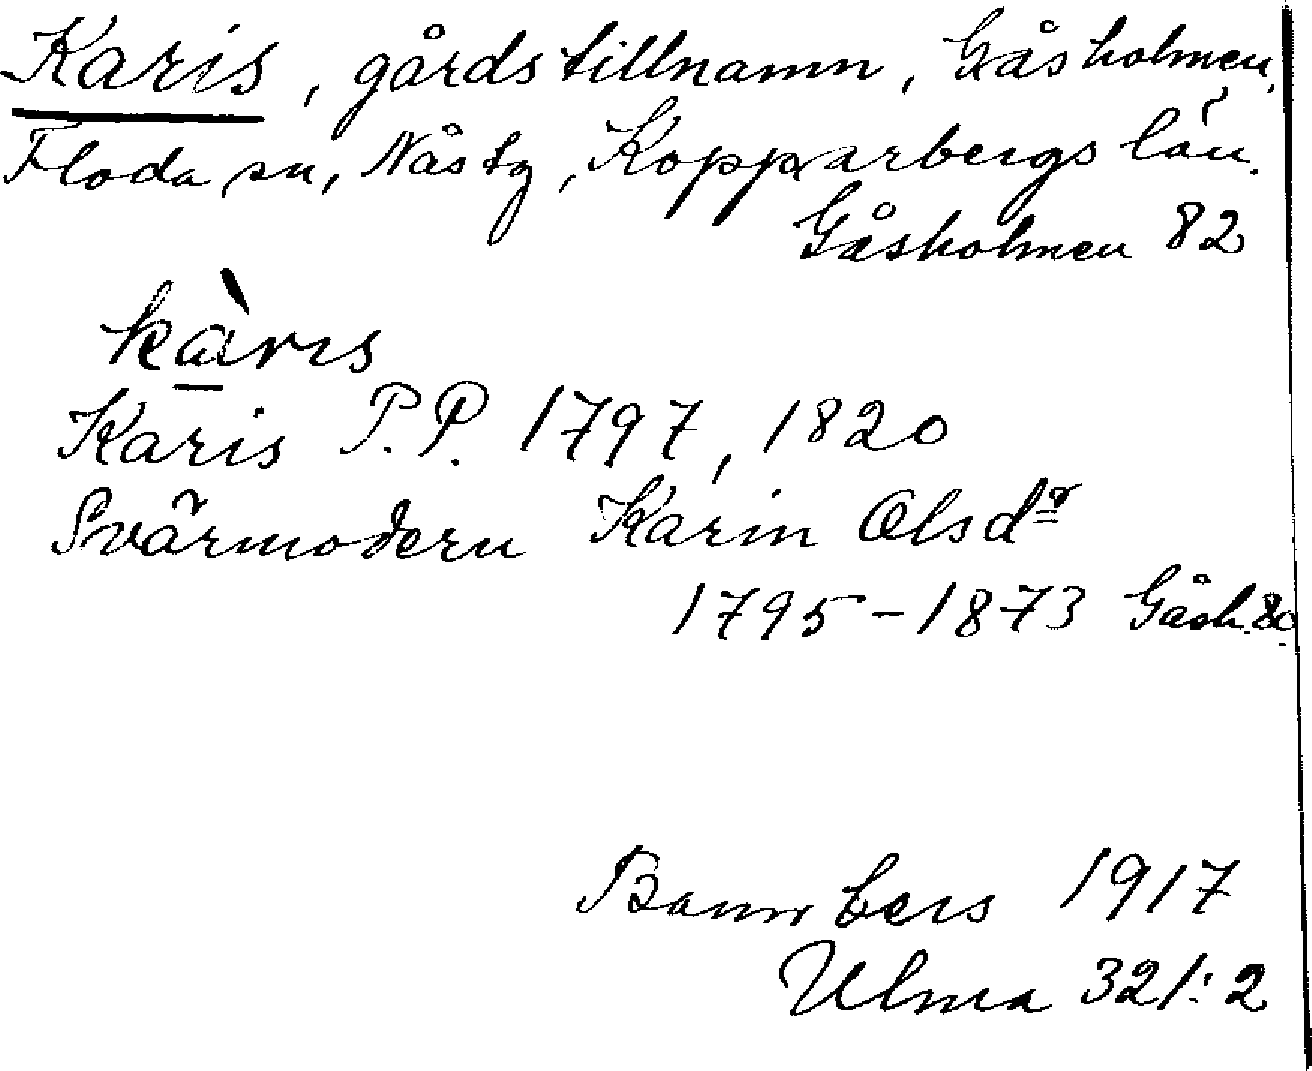 Karis, gårdstillnamn, Gåsholmen,
Floda sn, Nås tg, Kopparbergs län.
Gåsholmen 82
kàrıs
Karis P.P. 1797, 1820
Svärmodern Karin Olsdr
1795-1873 Gåsh. 80
Bannbers 1917
Ulma 321:2